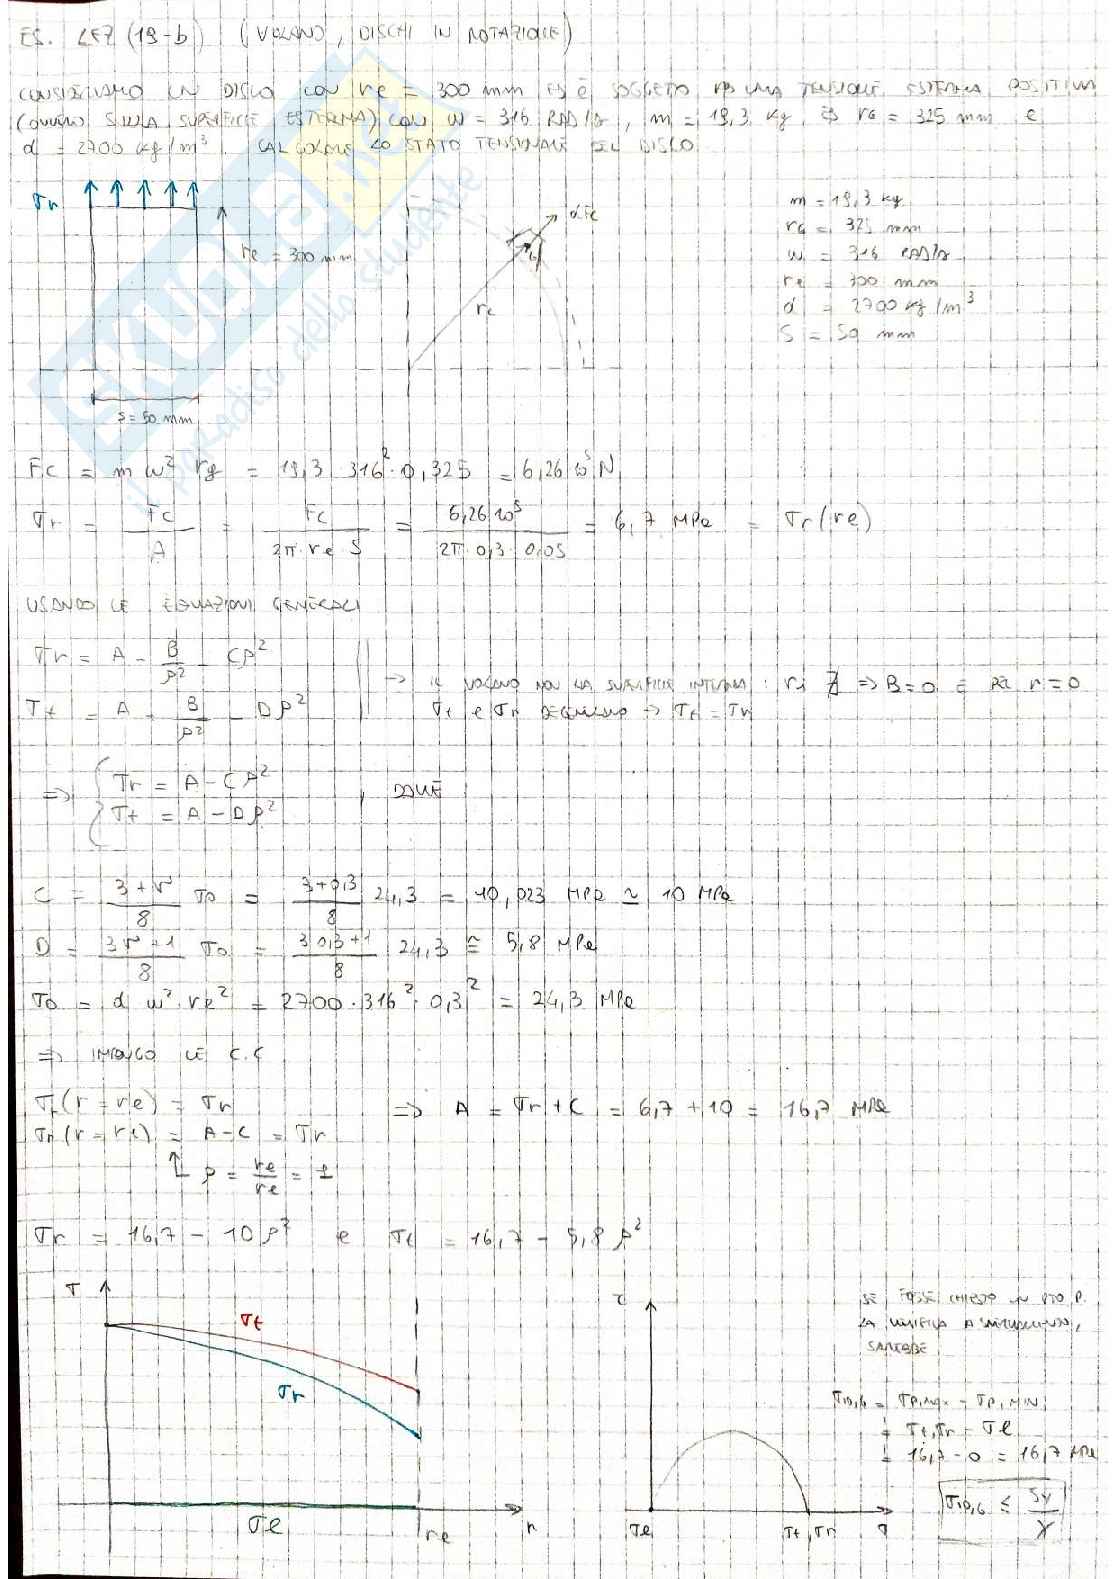 ES. LEZ (19-b) (VOLANO, DISCHI IN ROTAZIONE)
CONSIDERIAMO UN DISCO CON re = 300 mm ED È SOGGETTO AD UNA TENSIONE ESTERNA POSITIVA
(OVVERO SULLA SUPERFICIE ESTERNA) CON ω = 316 RAD/s, m = 19,3 kg, ED rG = 325 mm E
d = 2700 kg/m³. CALCOLARE LO STATO TENSIONALE DEL DISCO
σr
re = 300 mm
s = 50 mm
dFc
re
m = 19,3 kg
rG = 325 mm
ω = 316 RAD/s
re = 300 mm
d = 2700 kg/m³
S = 50 mm
Fc = m ω² rg = 19,3 · 316² · 0,325 = 6,26 10⁵ N
σr = Fc / A = Fc / 2π · re · S = 6,26 10⁵ / 2π · 0,3 · 0,05 = 6,7 MPa = σr(re)
USANDO LE EQUAZIONI GENERALI
σr = A - B/ρ² - Cρ²
σt = A + B/ρ² - Dρ²
→ IL VOLANO NON HA SUPERFICIE INTERNA: ri ∄ ⇒ B=0 E PER r=0
σt e σr → σt = σr
⇒ { σr = A - Cρ²
σt = A - Dρ²
, DOVE
C = 3+ν / 8 σ0 = 3+0,3 / 8 24,3 = 10,023 MPa ≃ 10 MPa
D = 3ν+1 / 8 σ0 = 3·0,3+1 / 8 24,3 ≅ 5,8 MPa
σ0 = d ω² · re² = 2700 · 316² · 0,3² = 24,3 MPa
⇒ IMPONGO LE C.C
σr(r = re) = σr ⇒ A = σr + C = 6,7 + 10 = 16,7 MPa
σr(r = re) = A - C = σr
↑ ρ = re/re = 1
σr = 16,7 - 10ρ² e σt = 16,7 - 5,8ρ²
σ
σt
σr
σl
re
r
τ
σl
σt, σr
σ
SE FOSSE CHIESTO IN PTO P.
LA VERIFICA A SNERVAMENTO,
SAREBBE
σID,G = σP,MAX - σP,MIN
= σt,σr - σl
= 16,7 - 0 = 16,7 MPa
σID,G ≤ Sy/X
SKUOLA.net
il paradiso dello studente